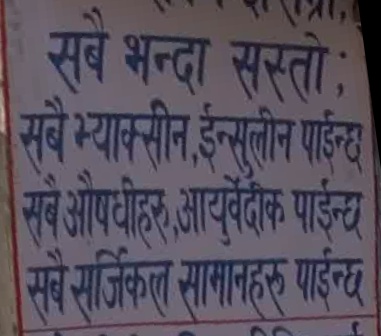 सबै भन्दा सस्तो;
सबै भ्याक्सीन,ईन्सुलीन पाईन्छ
सबै औषधीहरु,आयुर्वेदीक पाईन्छ
सबै सर्जिकल सामानहरू पाईन्छ